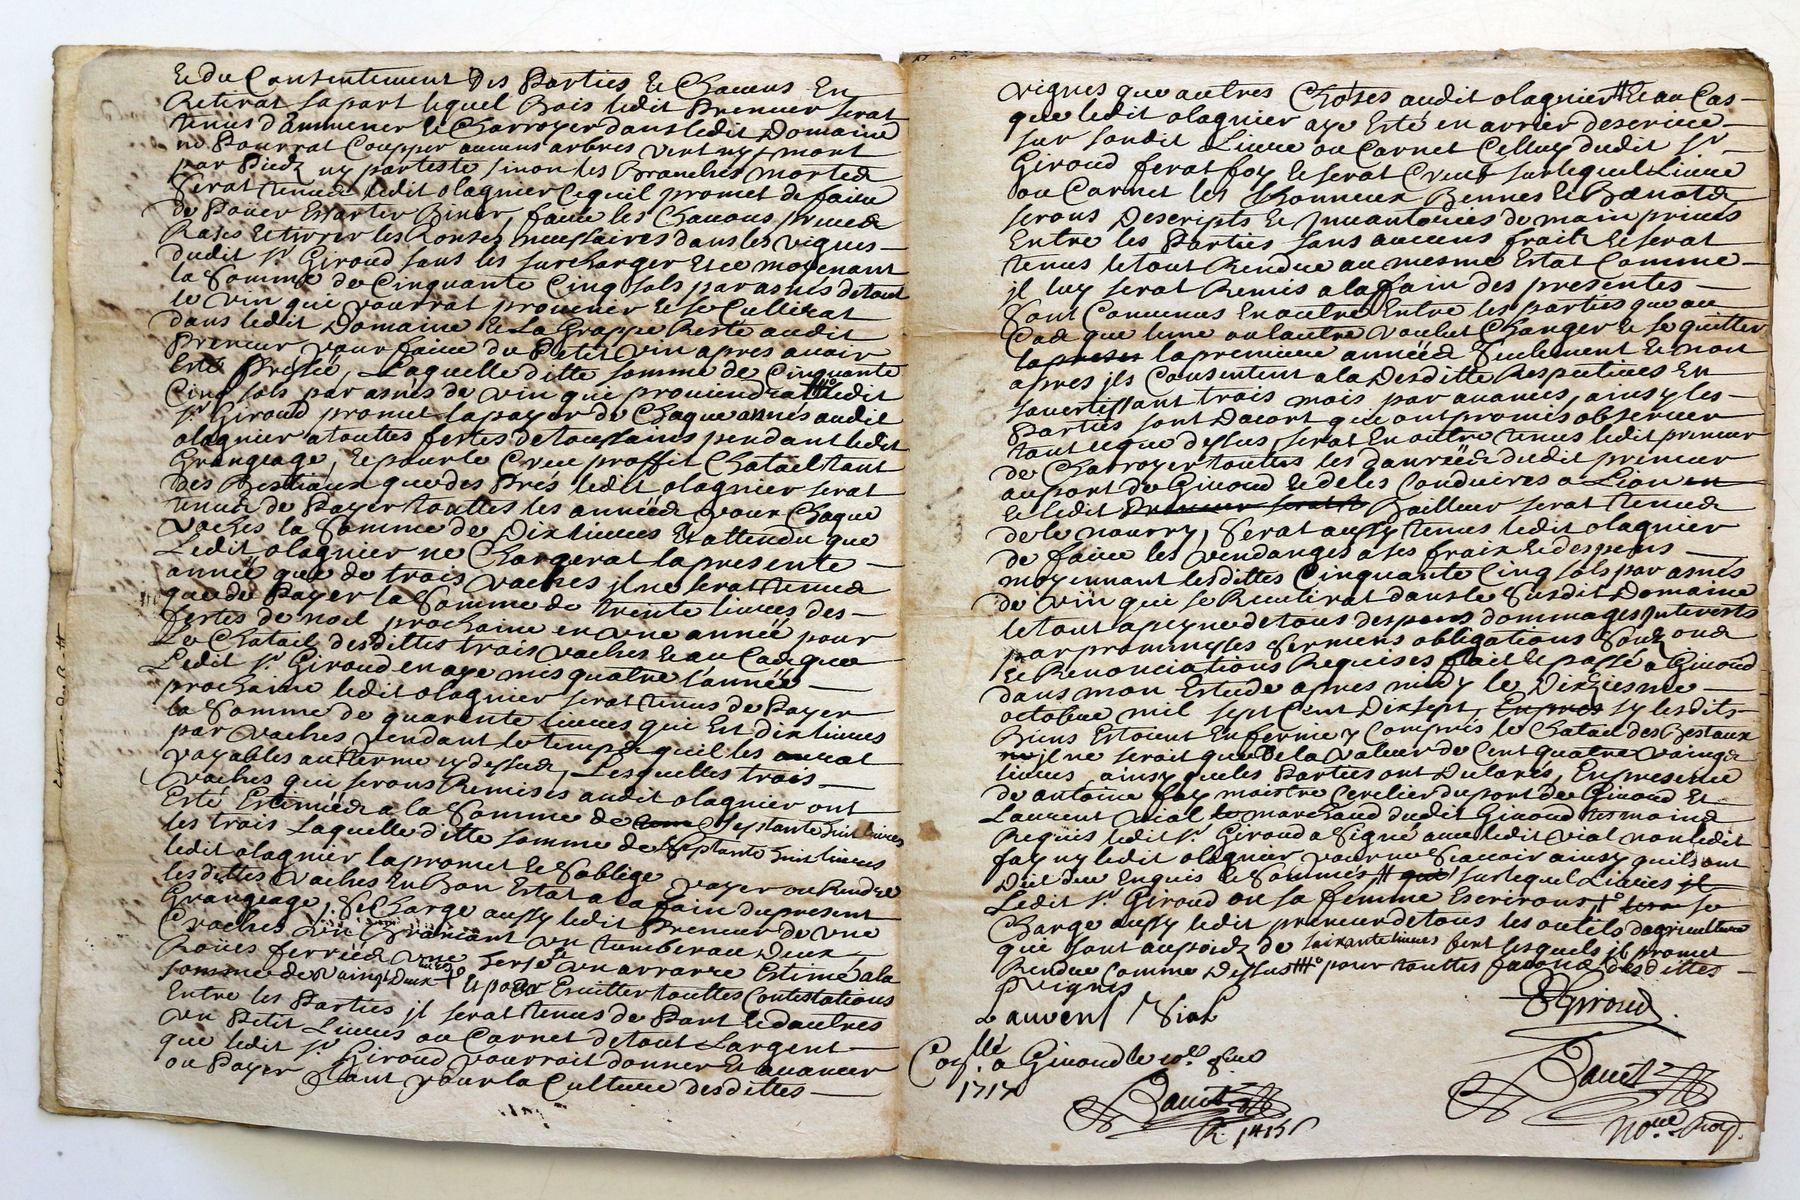 Et du Consentement Des Parties, Et Chacuns En
Retirat sa part lequel Bois ledit Preneur serat
tenus d'Emmener Et Charroyer dans ledit Domaine
ne Pourrat Coupper aucuns arbres vert ny mort
par Piedz ny par teste sinon les Branches mortes
Serat tenus ledit olagnier Ce quil promet de faire
de Poüer Essarter Biner, faire les Chavons prendre
Rases Et tirer les Ronses necessaires dans les vignes
dudit Sr Giroud sans les surcharger Et ce moyenant
la Somme de Cinquante Cinq sols par asnés de tout
le vin qui pourrat provenir Et se Cullirat
dans ledit Domaine Et La Grappe Reste audit
Preneur pour faire du Petit vin apres avoir
Esté Pressée, Laquelle ditte somme de Cinquante
Cinq sols par asnés de vin qui proviendrat ledit
Sr Giroud promet la payer de Chaque année audit
olagnier a touttes festes de toussains pendant ledit
Grangeage, Et pour le Crue proffit Chatail tant
des Bestiaux que des Prés ledit olagnier serat
tenus de Payer touttes les années pour Chaque
vaches la Somme de Dix livres Et attendu que
Ledit olagnier ne Chargerat la presente
année que de trois vaches il ne serat tenus
que de Payer la Somme de trente livres des
festes de noel prochaine en une année pour
Le Chatail desdittes trois vaches Et au Cas que
Ledit Sr Giroud en aye mis quatre l'année
prochaine ledit olagnier serat tenus de Payer
la Somme de quarente livres qui Est dix livres
par vaches pendant le temps quil les aurat
payables au terme cy dessus, Lesquelles trois
vaches qui serons Remises audit olagnier ont
Esté Estimées a la Somme de septante huit livres
les trois Laquelle ditte somme de septante huit livres
ledit olagnier la promet Et S'oblige payer ou Rendre
lesdittes vaches En Bon Estat a la fain du present
Grangeage, Se Charge aussy ledit Preneur de une
Roües ferrées une un tumbereau deux
somme de vaingt Deux Et pour Eviitter touttes Contestations
Entre les Parties il serat tenus de Part Et dautres
un Petit Livres ou Carnet de tout Largent
que ledit Sr Giroud pourrait donner Et avancer
ou Payer tant pour la Culture desdittes
vignes que autres Choses audit olagnier Et au Cas
que ledit olagnier aye Esté en arrier descrire
sur sondit Livre ou Carnet Celluy dudit Sr
Giroud ferat foy Et serat Creus sur lequel Livre
ou Carnet les Thonneux Bennes Et Benotes
serons Descripts Et Inventoriés de main prives
Entre les Parties sans aucuns fraits Et serat
tenus le tout Rendre au mesme Estat Comme
il luy serat Remis a la fain des presentes
Sont Convenus En outre Entre les parties que au
Cas que lune ou lautre voulut Changer Et se quitter
la premiere année Seulement Et non
apres ils Consentent a la Desditte Respectives En
savertissant trois mois par avance, ainsy les
Parties sont Dacort que ont promis observer
tout ceque dessus, serat En outre tenus ledit preneur
de Charroyer touttes les danrées dudit preneur
au port de Givord Et de les Conduires a Lion
Et ledit Bailleur serat tenus
de le nourry, Serat aussy tenus ledit olagnier
de faire les vendanges a ses fraix Et despens
moyennant lesdittes Cinquante Cinq sols par asnés
de vin qui se Recutirat dans le susdit Domaine
le tout a peyne de tous despens dommages Interests
par prommesses sermens obligations
Et Renonciations Requises fait Et passé a Givord
dans mon Estude apres midy le Dixiesme
octobre mil sept Cent Dixsept, sy lesdits
Biens Estoient En ferme y Compris le Chatail des Bestaux
il ne serait que de la valeur de Cent quatre vaingt
livres ainsy que les Parties ont Declarés, En presence
de antoine fay maistre Cerclier du port de Givord Et
Laurent vial marchand dudit Givord tesmoins
Requis ledit Sr Giroud a Signé avec ledit vial non ledit
fay ny ledit olagnier pour ne Scavoir ainsy quils ont
Dit deu Enquis Et Sommés sur lequel Livres
Ledit Sr Giroud ou sa femme Escrirons se
Charge aussy ledit preneur de tous les outils dagriculture
qui sont au poidz de soixante livres lesquels il promet
Rendre Comme Dessus pour touttes desdittes
vignes
Lauvent Vial
Giroud
Collé a Givord le
1717